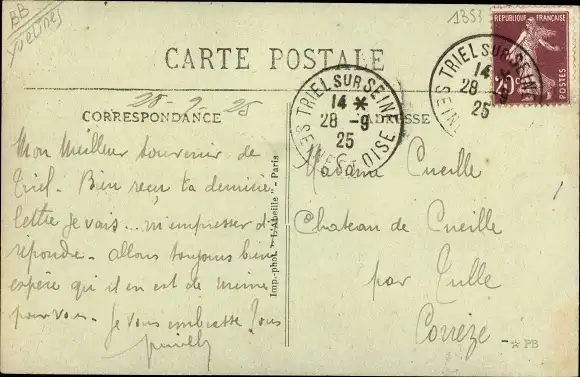 BB
Yvelines
1353
REPUBLIQUE FRANÇAISE
POSTES
20c
CARTE POSTALE
TRIEL SUR SEINE
14 *
28 -9
25
SEINE ET OISE
TRIEL SUR SEINE
14 *
28 -9
25
SEINE
28-9-25
CORRESPONDANCE
ADRESSE
Mon Meilleur souvenir de
Triel. Bien reçu ta dernière
lettre je vais... m'empresser d'y
repondre. allons toujours bien
espère qu'il en est de meme
pour vous. Je vous embrasse Tous
Imp.-phot. "L'Abeille" - Paris
Madame Cueille
Chateau de Cueille
par Tulle
Corrèze
-* PB